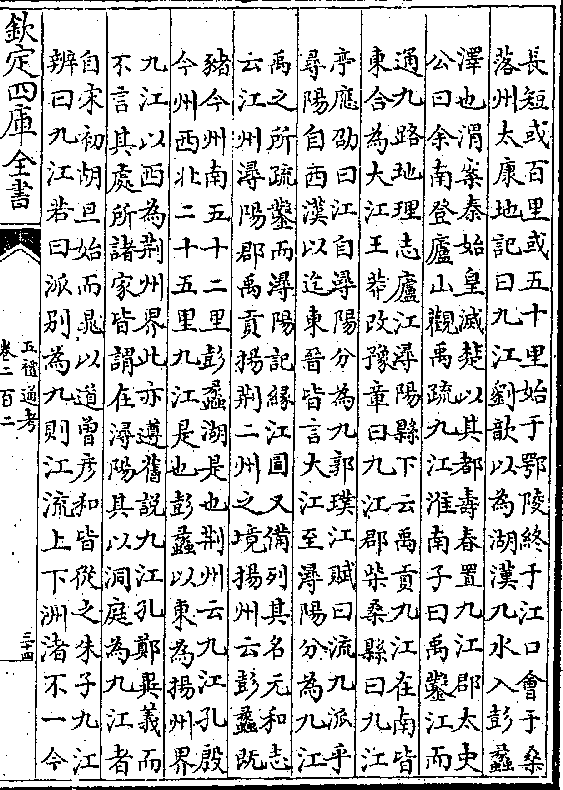 長短或百里或五十里始于鄂陵終于江口會于桑
落州太康地記曰九江劉歆以為湖漢九水入彭蠡
澤也渭案秦始皇滅楚以其都壽春置九江郡太史
公曰余南登廬山觀禹疏九江淮南子曰禹鑿江而
通九路地理志廬江潯陽縣下云禹貢九江在南皆
東合為大江王莽改豫章曰九江郡柴桑縣曰九江
亭應劭曰江自潯陽分為九郭璞江賦曰流九派乎
尋陽自西漢以迄東晉皆言大江至潯陽分為九江
禹之所疏鑿而潯陽記緣江圖又備列其名元和志
云江州潯陽郡禹貢揚荆二州之境揚州云彭蠡既
豬今州南五十二里彭蠡湖是也荆州云九江孔殷
今州西北二十五里九江是也彭蠡以東為揚州界
九江以西為荆州界此亦遵舊說九江孔鄭異義而
不言其處所諸家皆謂在潯陽其以洞庭為九江者
自宋初胡旦始而晁以道曾彦和皆從之朱子九江
辨曰九江若曰派別為九則江流上下洲渚不一今
欽定四庫全書
五禮通考
卷二百二
三十四